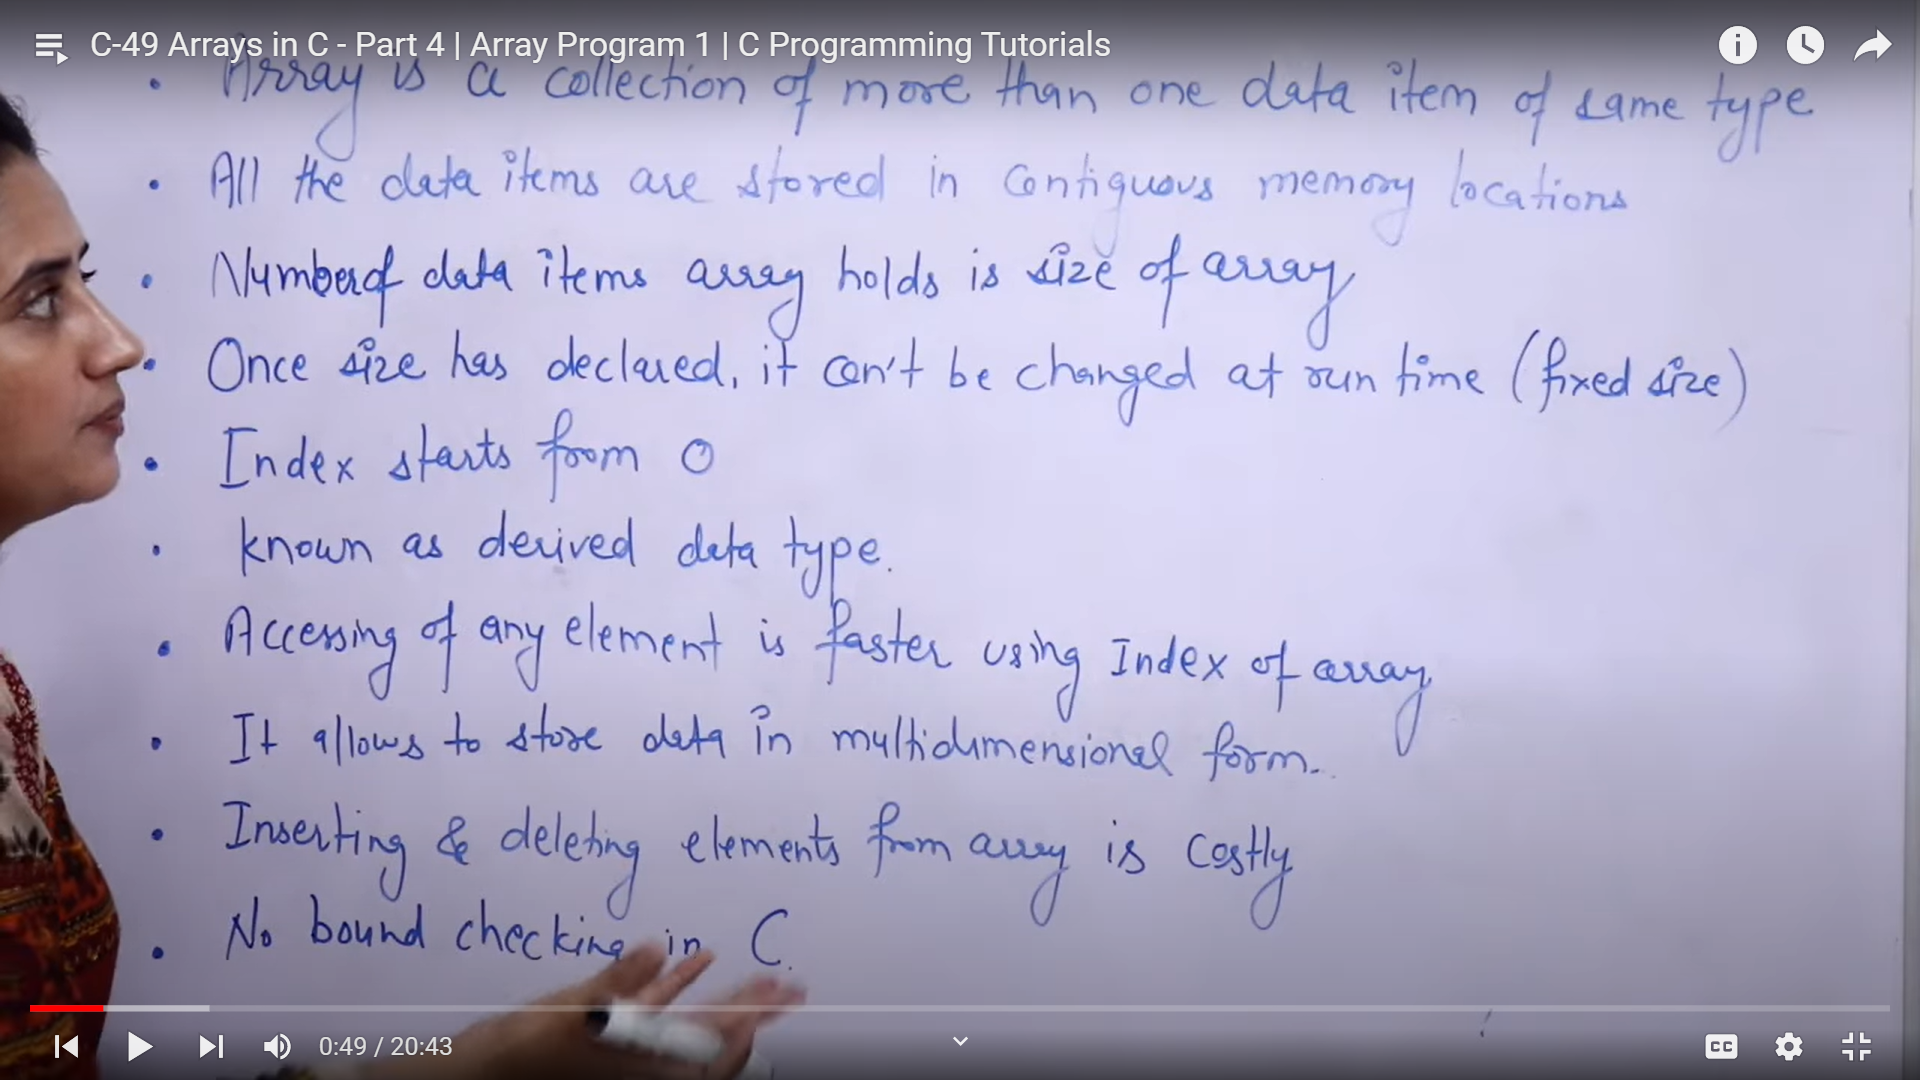 C-49 Arrays in C - Part 4 | Array Program 1 | C Programming Tutorials
• Array is a collection of more than one data item of same type
• All the data items are stored in contiguous memory locations
• Number of data items array holds is size of array
• Once size has declared, it can't be changed at run time (fixed size)
• Index starts from 0
• known as derived data type.
• Accessing of any element is faster using Index of array
• It allows to store data in multidimensional form.
• Inserting & deleting elements from array is costly
• No bound checking in C.
0:49 / 20:43
CC